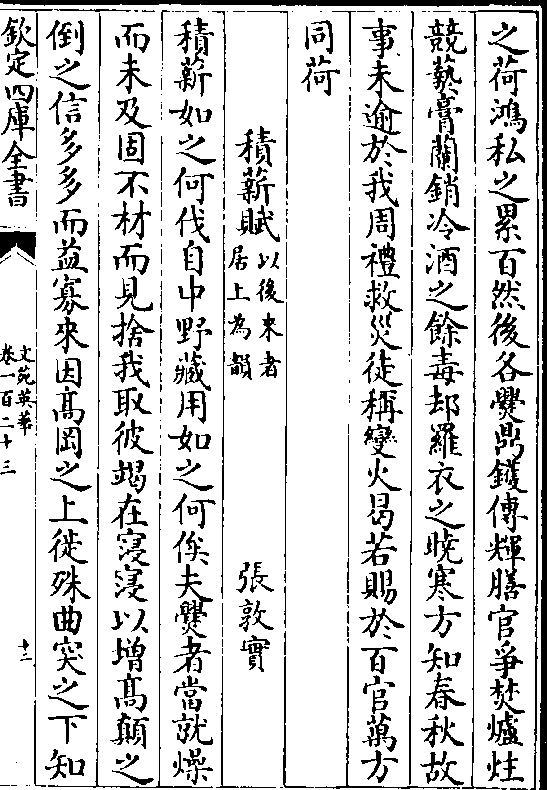 之荷鴻私之累百然後各爨鼎鑊傳輝膳官爭焚爐炷
競爇膏蘭銷冷酒之餘毒却羅衣之曉寒方知春秋故
事未逾於我周禮救災徒稱變火曷若賜於百官萬方
同荷
積薪賦以後來者居上為韻 張敦實
積薪如之何伐自中野藏用如之何俟夫爨者當就燥
而未及固不材而見捨我取彼竭在寖寖以增高顛之
倒之信多多而益寡來因高岡之上徙殊曲突之下知
欽定四庫全書
文苑英華
卷一百二十三
十二